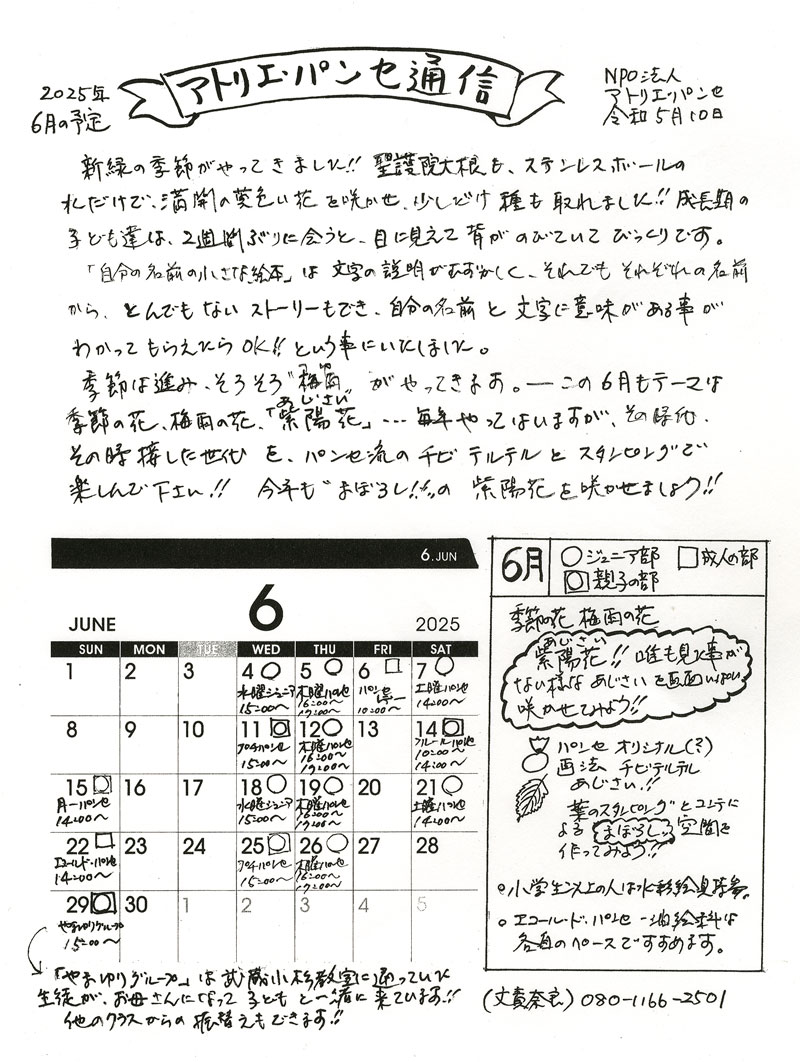 2025年
6月の予定
アトリエ・パンセ通信
NPO法人
アトリエ・パンセ
令和5月10日
新緑の季節がやってきました!! 聖護院大根も、ステンレスボールの
水だけで、満開の黄色い花を咲かせ、少しだけ種も取れました!! 成長期の
子ども達は、2週間ぶりに会うと、目に見えて背がのびていてびっくりです。
「自分の名前の小さな絵本」は文字の説明がむずかしく、それでもそれぞれの名前
から、とんでもないストーリーもでき、自分の名前と文字に意味がある事が
わかってもらえたらOK!! という事にいたしました。
季節は進み、そろそろ"梅雨"がやってきます。―この6月もテーマは
つゆ
あじさい
季節の花、梅雨の花、「紫陽花」… 毎年やってはいますが、その時代、
その時接した世代を、パンセ流のチビテルテルとスタンピングで
楽しんで下さい!! 今年も"まぼろし!!"の紫陽花を咲かせましょう!!
6.JUN
JUNE 6 2025
SUN MON TUE WED THU FRI SAT
1 2 3 4 5 6 7
水曜ジュニア 15:00〜
木曜パンセ 16:00〜 19:00〜
パンセ 10:00〜
土曜パンセ 14:00〜
8 9 10 11 12 13 14
プチパンセ 15:00〜
木曜パンセ 16:00〜 19:00〜
フルールパンセ 10:00〜 14:00〜
15 16 17 18 19 20 21
月一パンセ 14:00〜
水曜ジュニア 15:00〜
木曜パンセ 16:00〜 19:00〜
土曜パンセ 14:00〜
22 23 24 25 26 27 28
エコールド・パンセ 14:00〜
プチパンセ 15:00〜
木曜パンセ 16:00〜 19:00〜
29 30 1 2 3 4 5
やまゆりグループ 15:00〜
6月
ジュニア部 成人の部
親子の部
季節の花 梅雨の花
あじさい
紫陽花!! 誰も見た事が
ない様なあじさいを画面いっぱい
咲かせてみよう!!
パンセ オリジナル(?)
画法 チビテルテル
あじさい!!
葉のスタンピングとコンテに
よるまぼろしろ空間を
作ってみよう!!
○小学生以上の人は水彩絵具持参。
○エコールド・パンセ-油絵科は
各自のペースですすめます。
「やまゆりグループ」は武蔵小杉教室に通っていた
生徒が、お母さんになって子どもと一緒に来ています!!
他のクラスからの振替えもできます!!
(丈貴奈良) 080-1166-2501